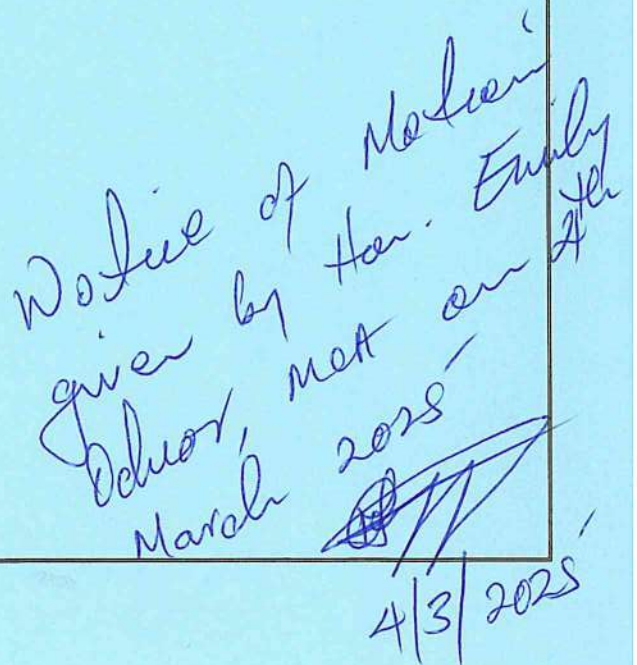 Notice of Motion
given by Hon. Emily
Oduor, MCA on 4th
March 2025
4/3/2025